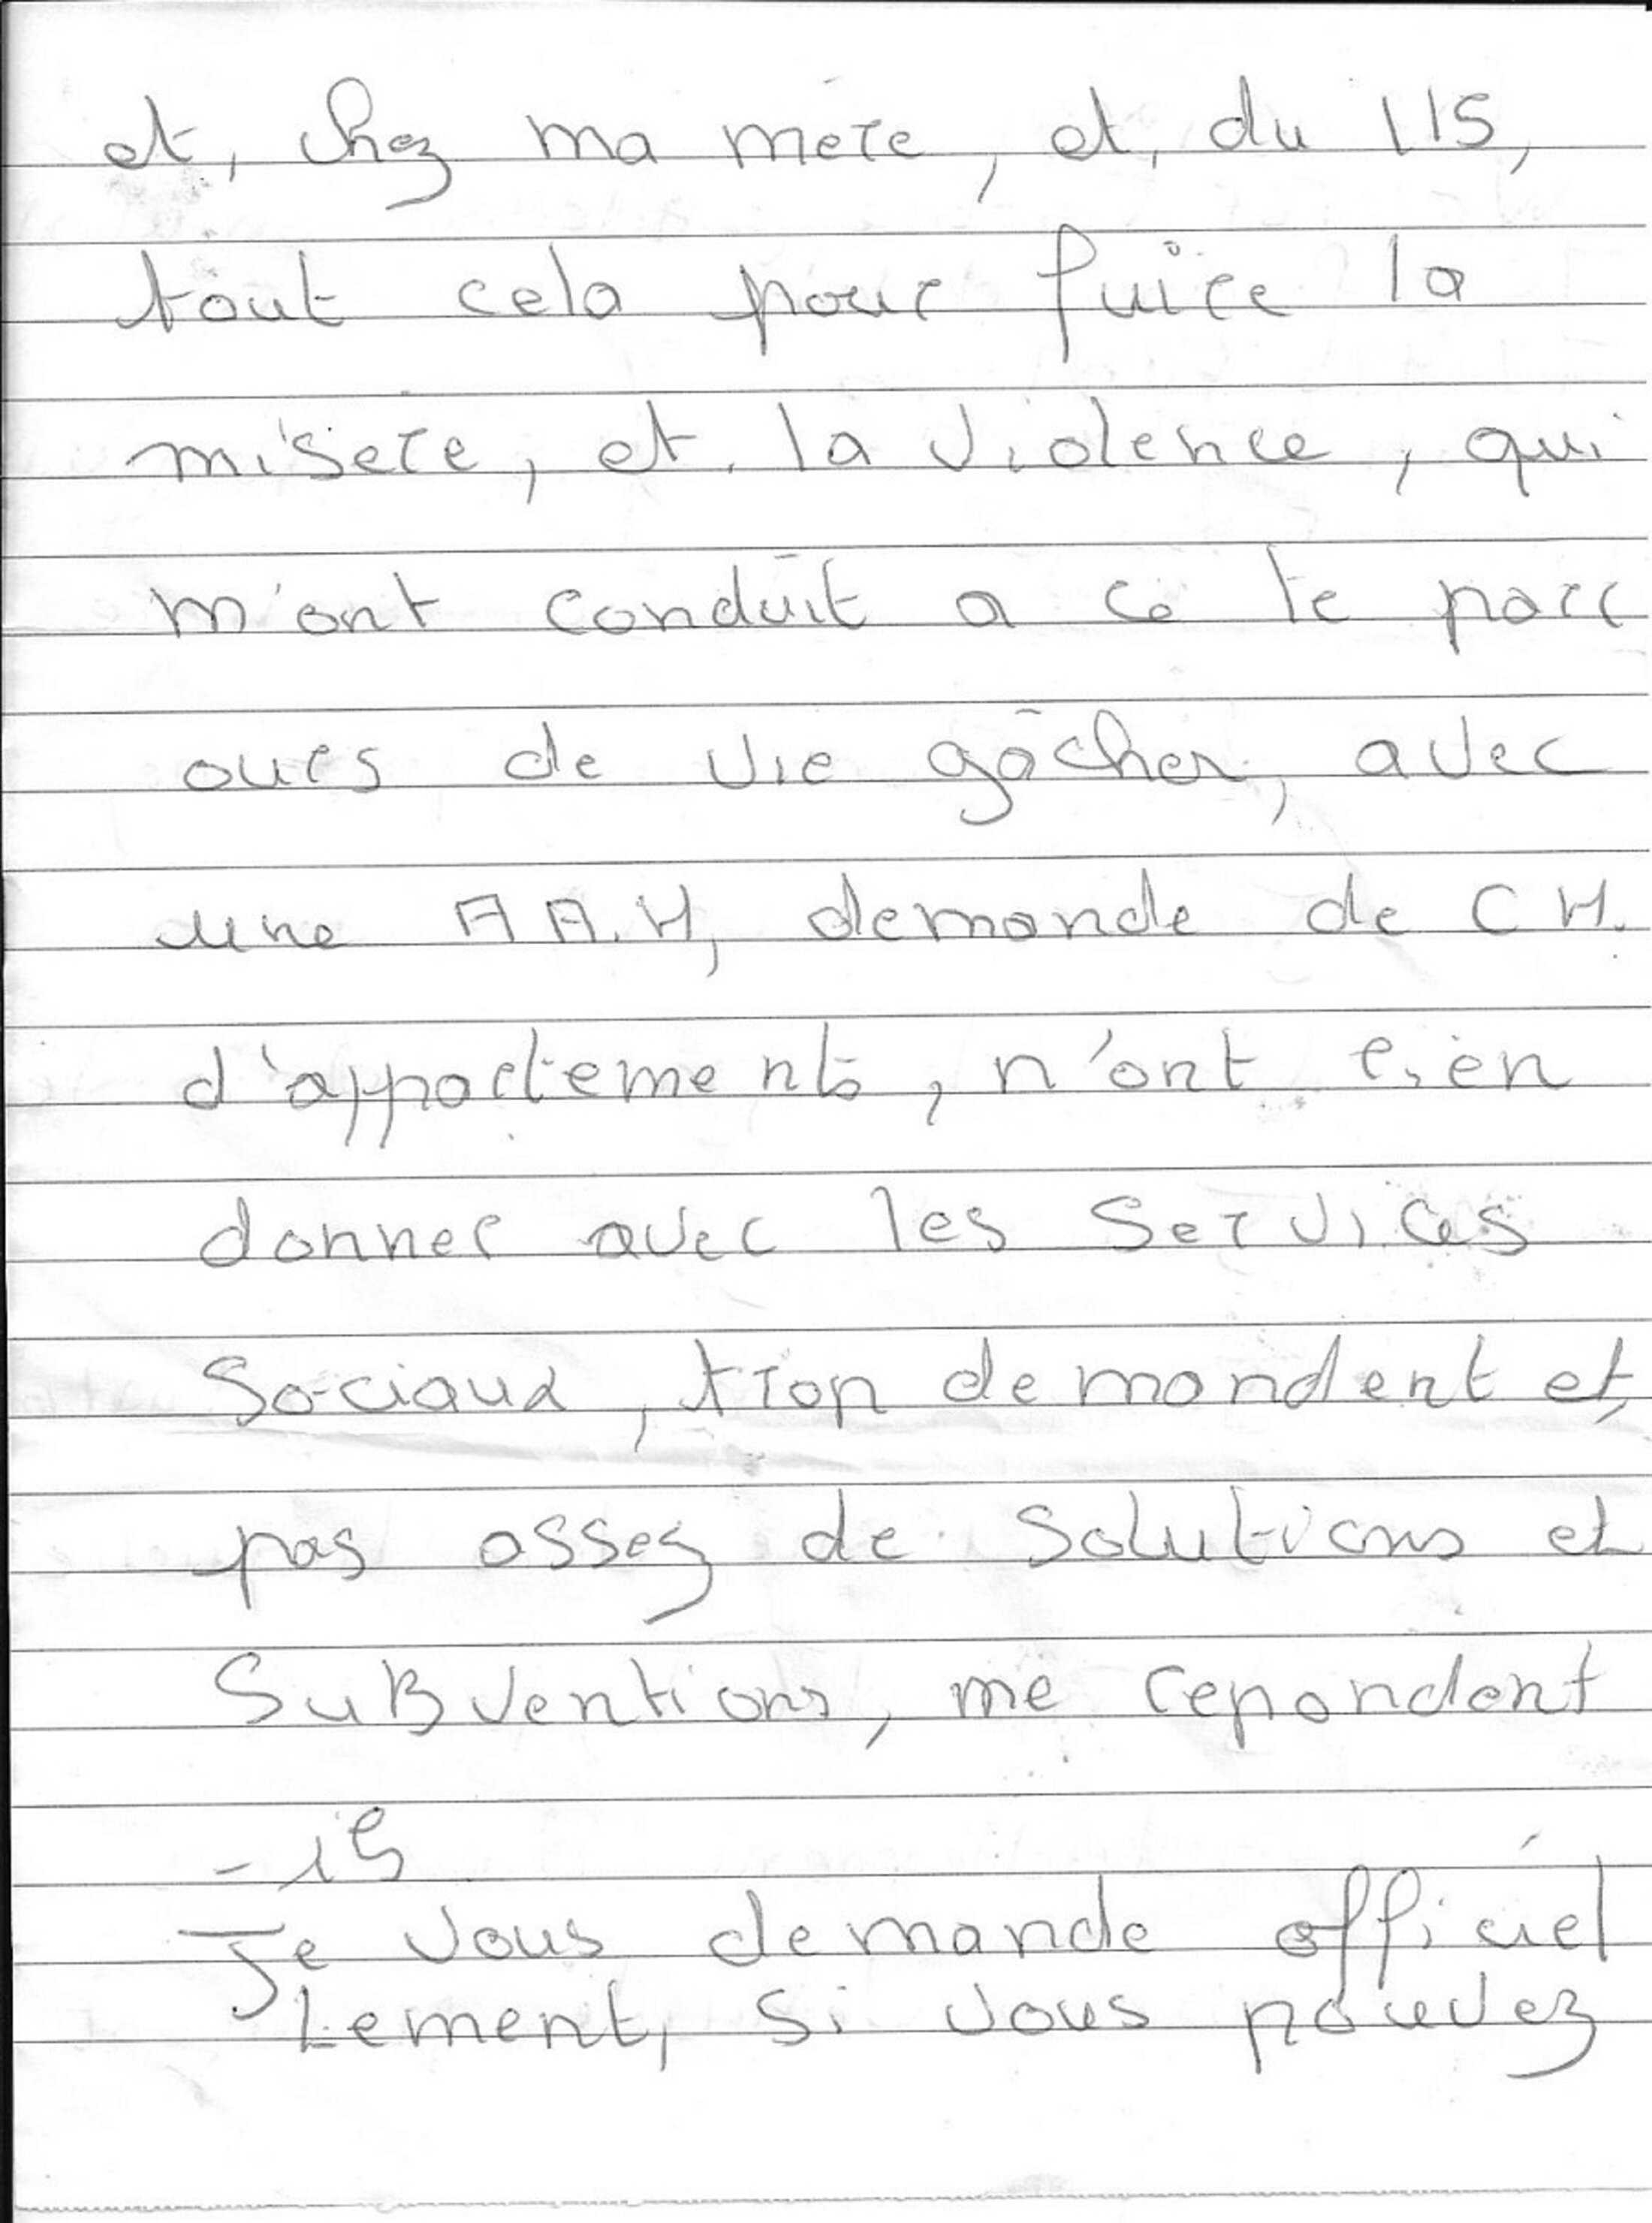 et, chez ma mère, et, du 115,
tout cela pour fuire la
misere, et. la violence, qui
m'ont conduit a ce te parc
ours de vie gâcher, avec
une A A.H, demande de C H.
d'appartements, n'ont rien
donner avec les services
Sociaux, trop demandent et,
pas assez de solutions et
SuBventions, me repondent
- ils
Je vous demande officiel
Lement, si vous pouvez